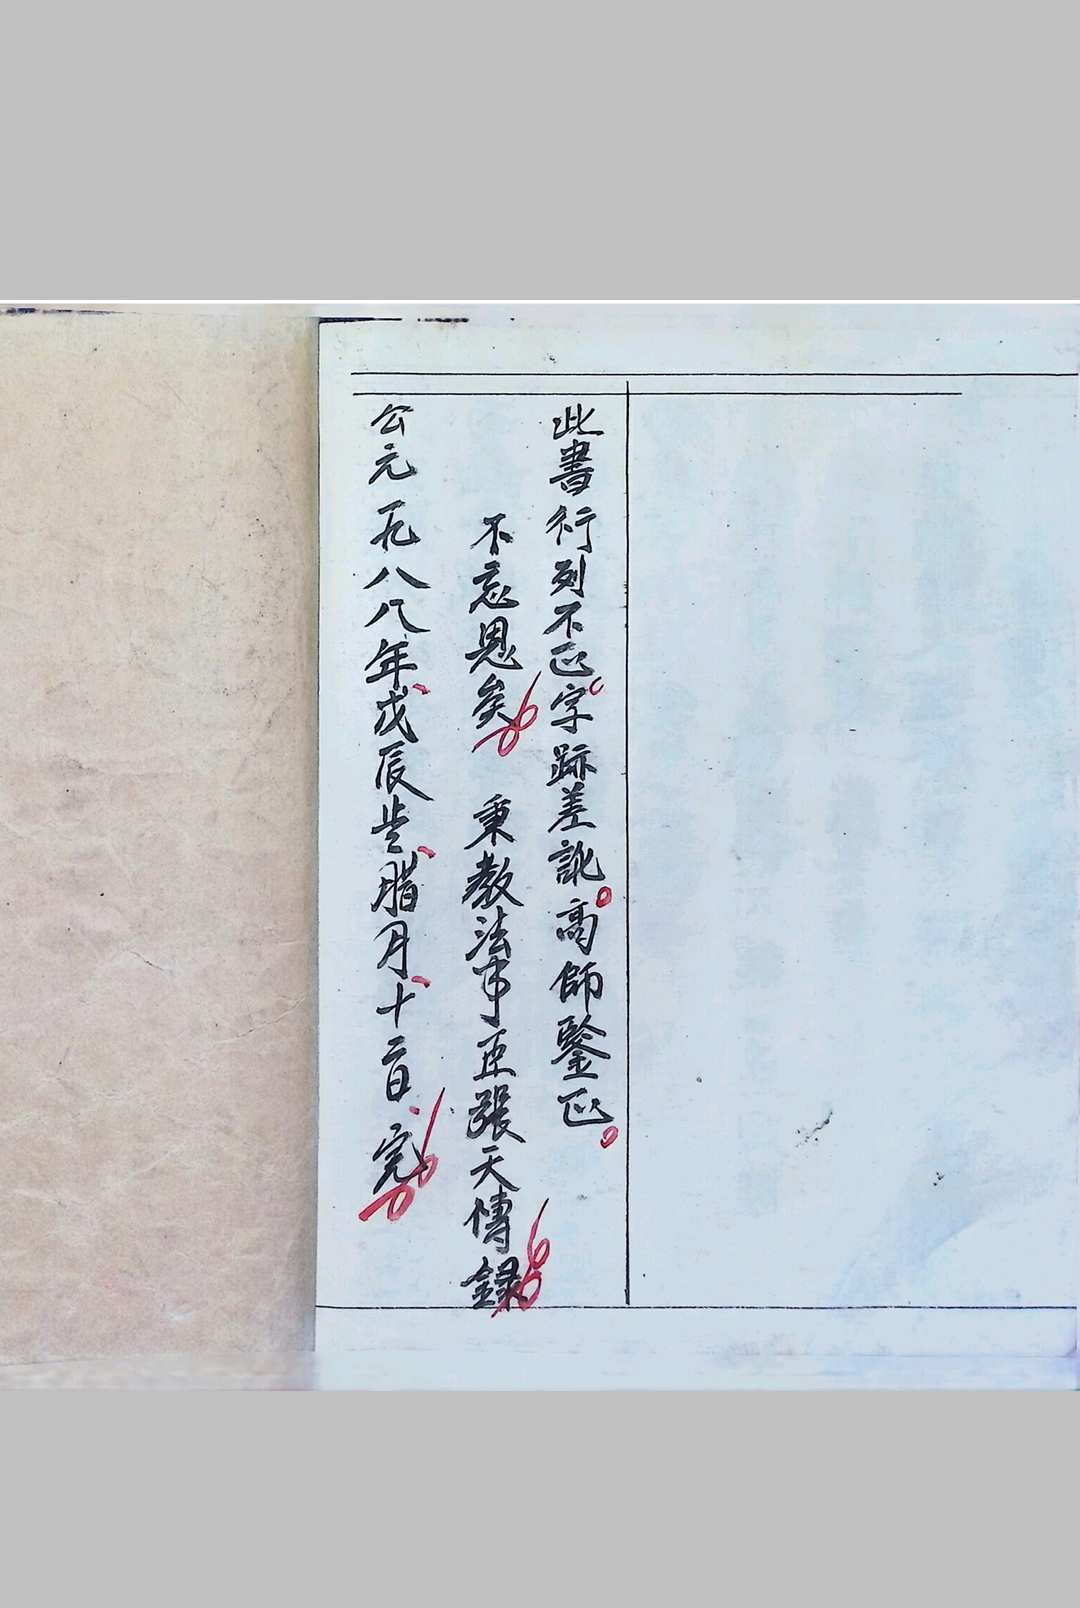 此書行列不正。字跡差訛。高師鑒正。
不忘恩矣 秉教法事臣張天傳錄
公元一九八八年、戊辰歲、腊月、十二日、完